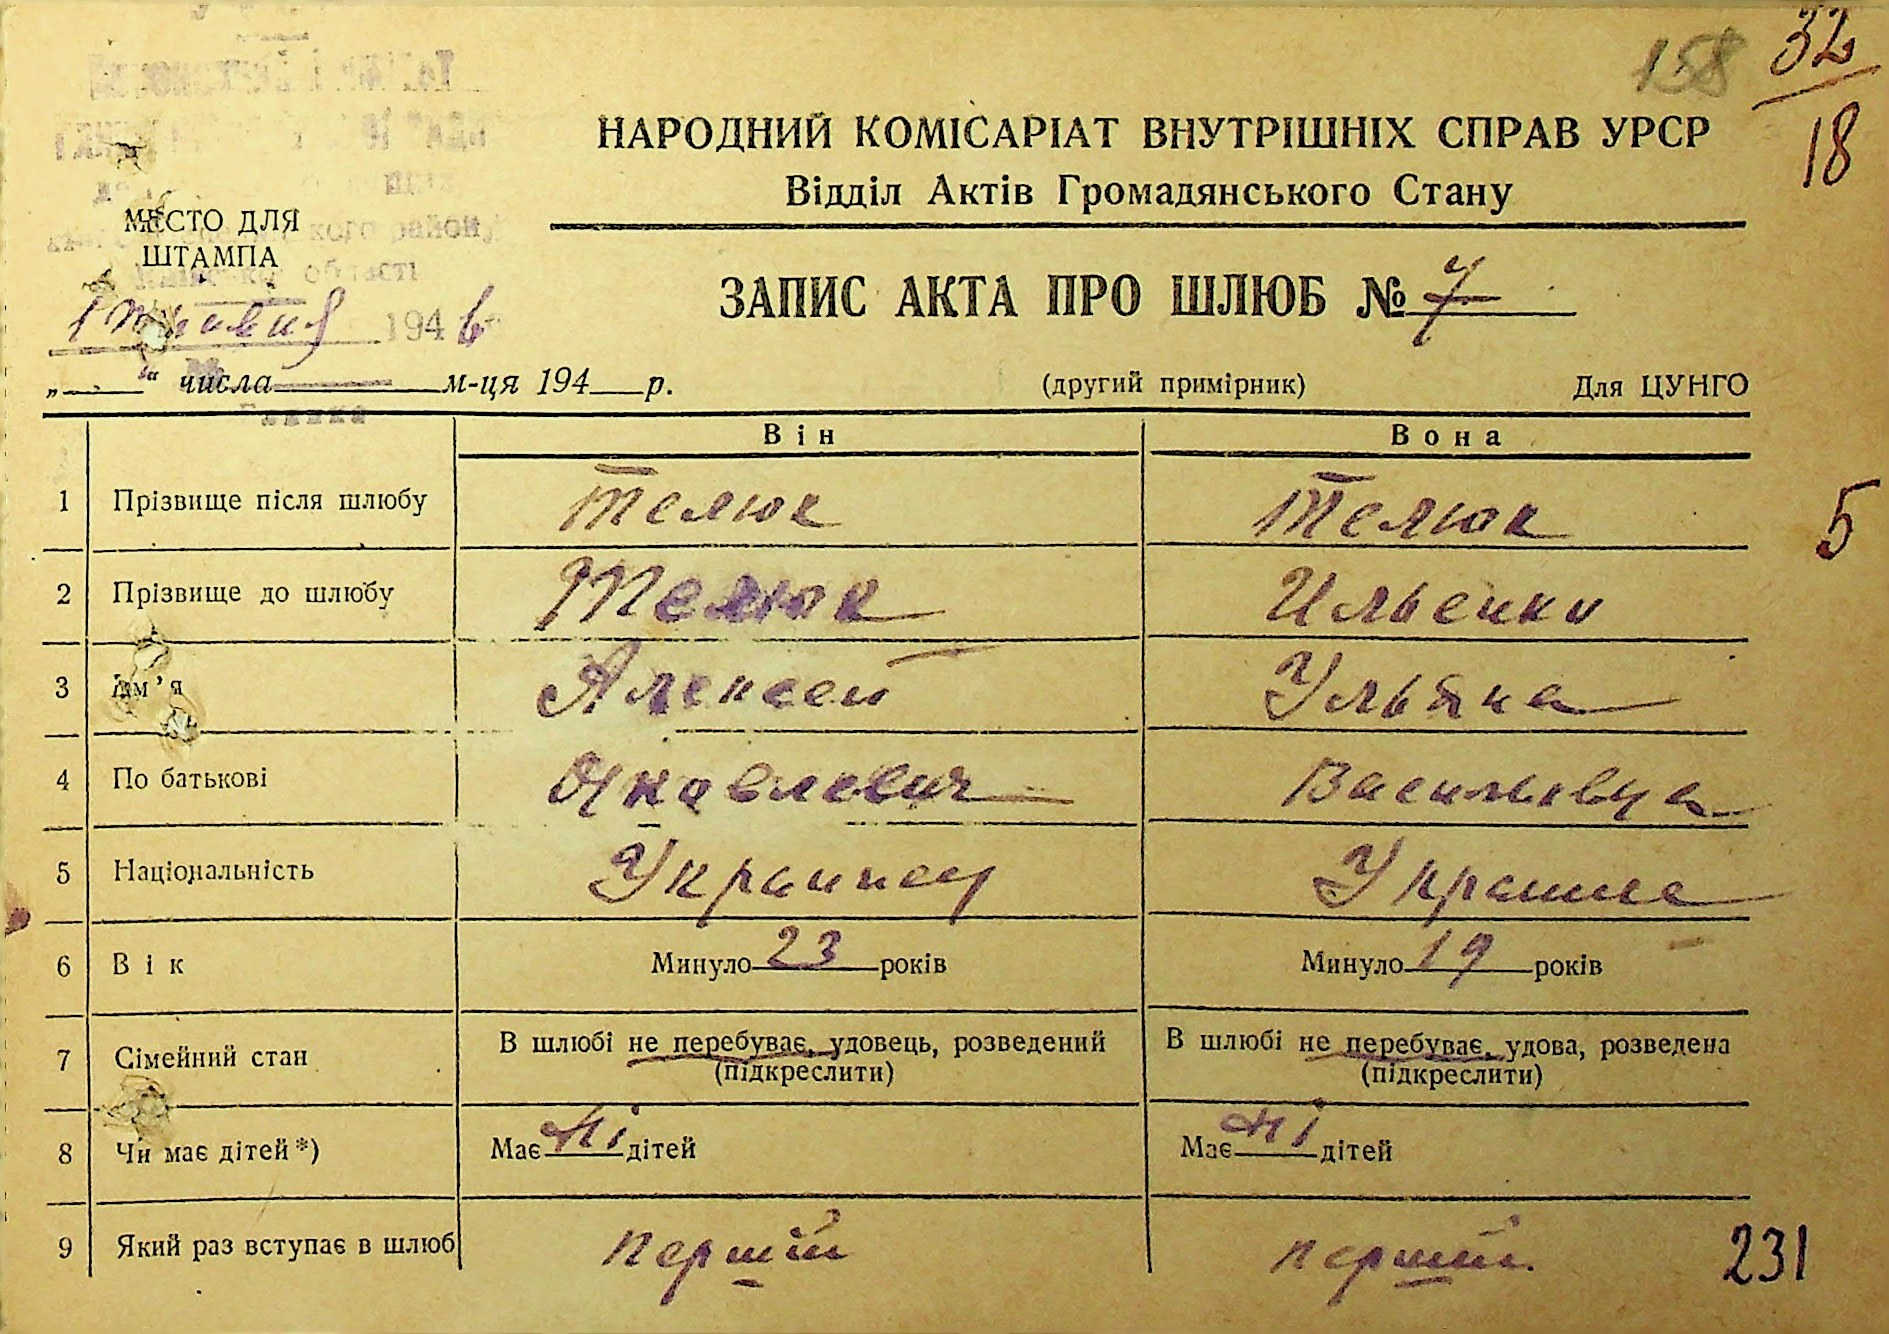 158
32
18
НАРОДНИЙ КОМІСАРІАТ ВНУТРІШНІХ СПРАВ УРСР
Відділ Актів Громадянського Стану
МЕСТО ДЛЯ
ШТАМПА
кого району
області
ЗАПИС АКТА ПРО ШЛЮБ № 7
1 194 6
„ “ числа м-ця 194 р.
(другий примірник) Для ЦУНГО
Він Вона
1 Прізвище після шлюбу Телюк Телюк
5
2 Прізвище до шлюбу Телюк Ильенко
3 Ім'я Алексей Ульяна
4 По батькові Яковлевич Васильевна
5 Національність Украинец Украинка
6 Вік Минуло 23 років Минуло 19 років
7 Сімейний стан В шлюбі не перебуває, удовець, розведений (підкреслити) В шлюбі не перебуває, удова, розведена (підкреслити)
8 Чи має дітей *) Має ні дітей Має ні дітей
9 Який раз вступає в шлюб перший перший
231